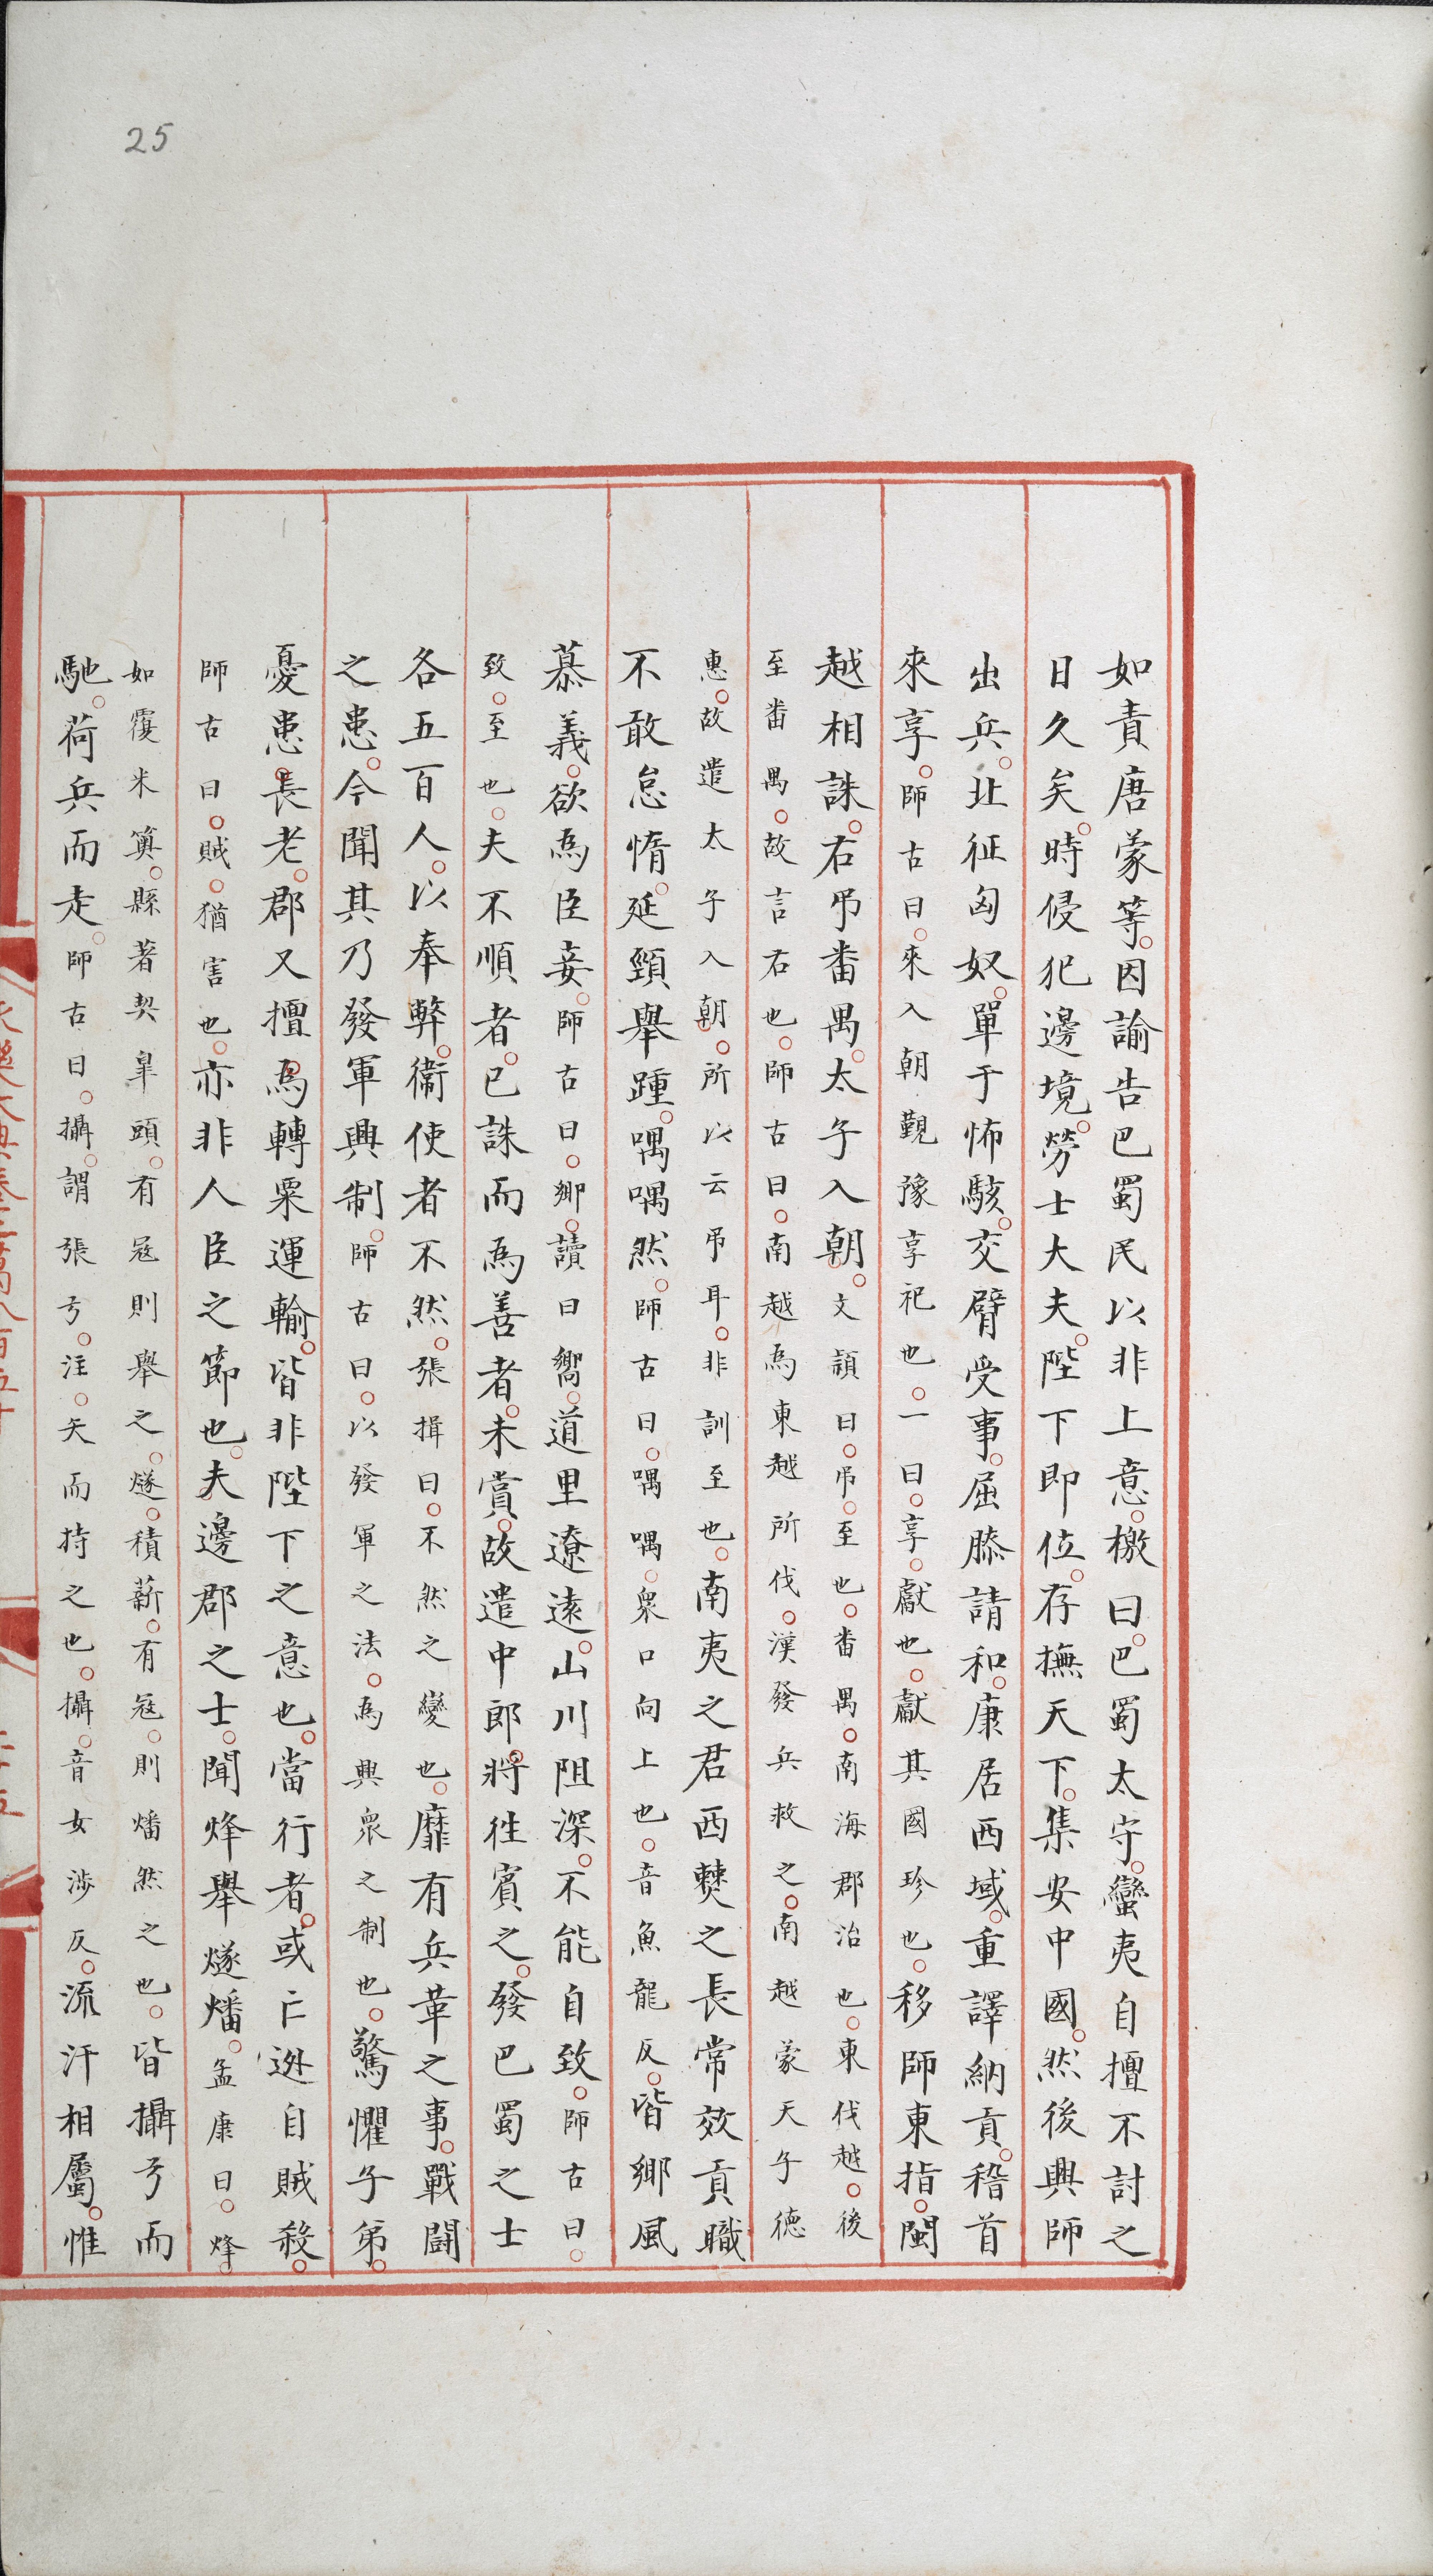 25
如責唐蒙等。因諭告巴蜀民以非上意。檄曰。巴蜀太守。蠻夷自擅不討之
日久矣。時侵犯邊境。勞士大夫。陛下即位。存撫天下。集安中國。然後興師
出兵。北征匈奴。單于怖駭。交臂受事。屈膝請和。康居西域。重譯納貢。稽首
來享。師古曰。來入朝覲豫享祀也。一曰。享。獻也。獻其國珍也。移師東指。閩
越相誅。右弔番禺。太子入朝。文頴曰。弔。至也。番禺。南海郡治也。東伐越。後
至番禺。故言右也。師古曰。南越為東越所伐。漢發兵救之。南越蒙天子德
惠。故遣太子入朝。所以云弔耳。非訓至也。南夷之君西僰之長常效貢職
不敢怠惰。延頸舉踵。喁喁然。師古曰。喁喁。衆口向上也。音魚龍反。皆鄉風
慕義。欲為臣妾。師古曰。鄉。讀曰嚮。道里遼遠。山川阻深。不能自致。師古曰。
致。至也。夫不順者。已誅而為善者。未賞。故遣中郎將。徃賓之。發巴蜀之士
各五百人。以奉幣。衛使者不然。張揖曰。不然之變也。靡有兵革之事。戰鬪
之患。今聞其乃發軍興制。師古曰。以發軍之法。為興衆之制也。驚懼子弟。
憂患。長老。郡又擅為轉粟運輸。皆非陛下之意也。當行者。或亡逃自賊殺。
師古曰。賊。猶害也。亦非人臣之節也。夫邊郡之士。聞烽舉燧燔。孟康曰。烽。
如覆米䉛。縣著契皐頭。有寇則舉之。燧。積薪。有寇。則燔然之也。皆攝弓而
馳。荷兵而走。師古曰。攝。謂張弓。注。矢而持之也。攝。音女涉反。流汗相屬。惟